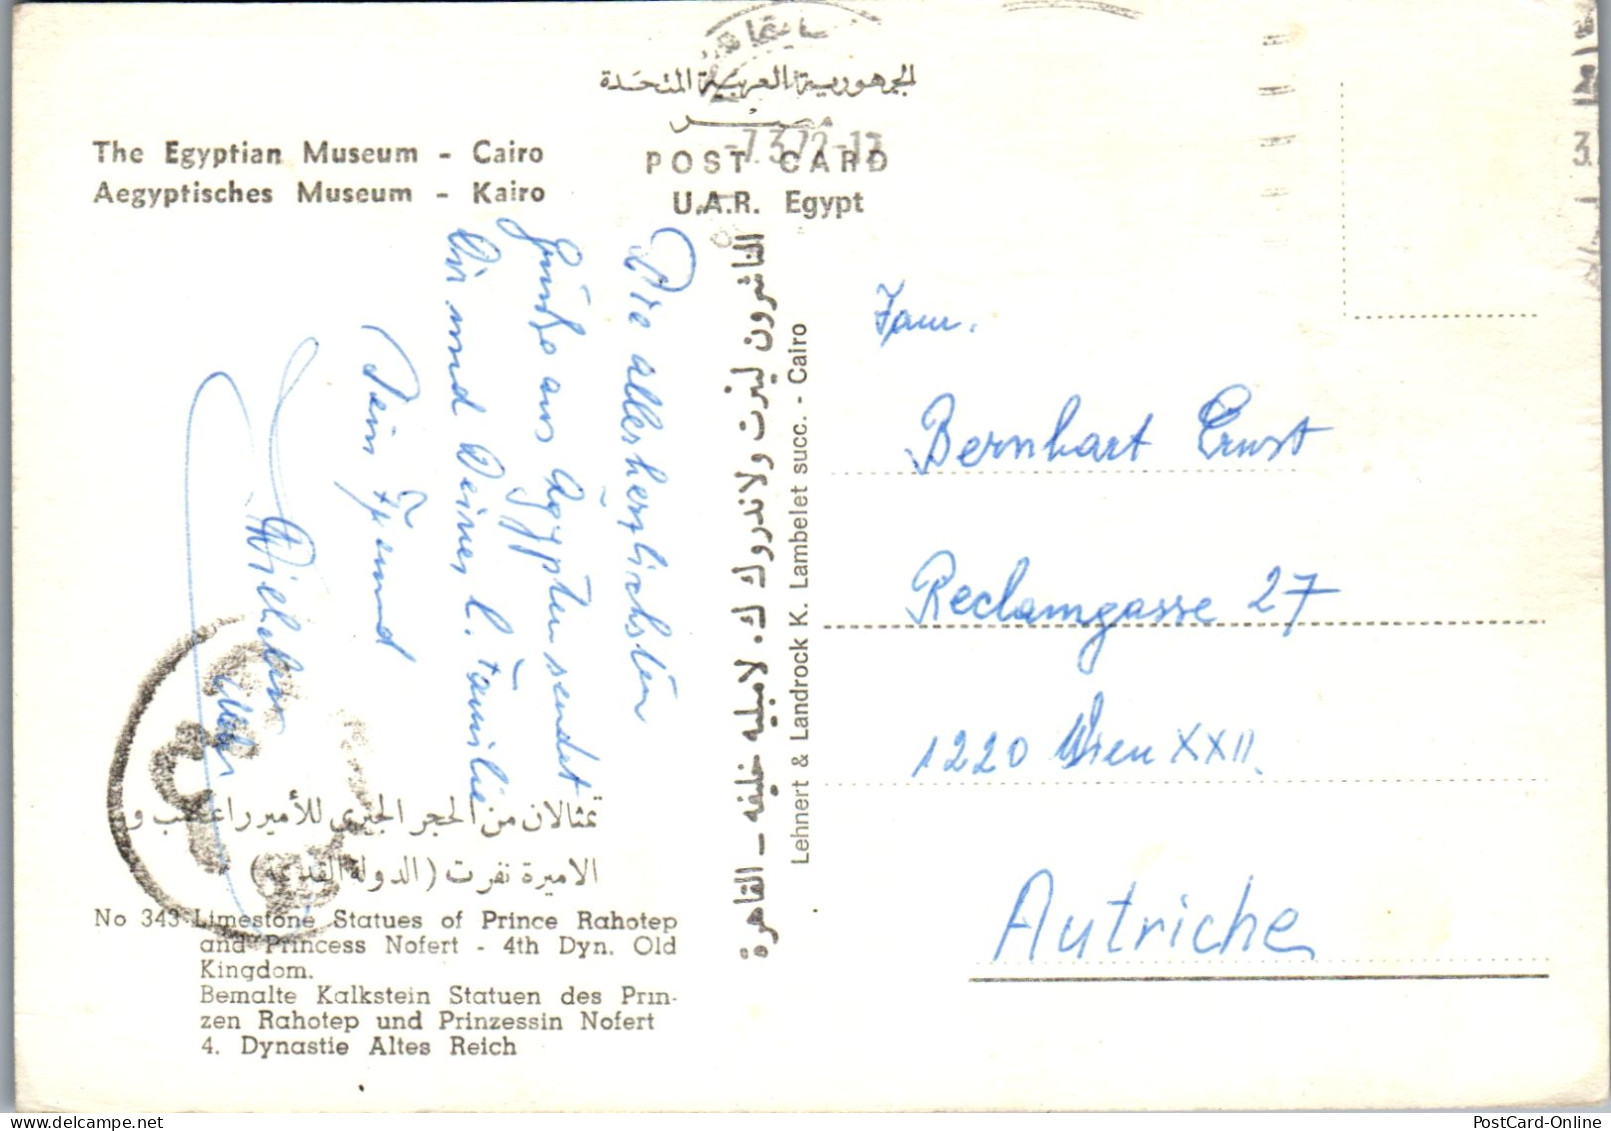 الجمهورية العربية المتحدة
مصر
-7.3.72-13
POST CARD
U.A.R. Egypt
The Egyptian Museum - Cairo
Aegyptisches Museum - Kairo
Die allerherzlichsten
Grüße aus Ägypten sendet
Dir und Deiner l. Familie
Dein Freund
الناشرون لينرت ولاندروك ك. لامبليه خليفه - القاهرة
Lehnert & Landrock K. Lambelet succ. - Cairo
Fam.
Bernhart Ernst
Reclamgasse 27
1220 Wien XXII.
Autriche
تمثالان من الحجر الجيرى للأمير راعحتب و
الاميرة نفرت (الدولة القديمة)
No 343 Limestone Statues of Prince Rahotep
and Princess Nofert - 4th Dyn. Old
Kingdom.
Bemalte Kalkstein Statuen des Prin-
zen Rahotep und Prinzessin Nofert
4. Dynastie Altes Reich
PostCard-Online